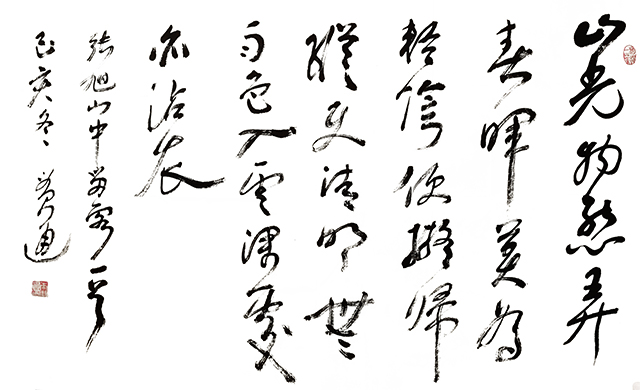 山光物態弄
春暉莫為
輕陰便擬歸
縱使清明無
雨色入雲深處
亦沾衣
張旭山中留客一首
己亥冬